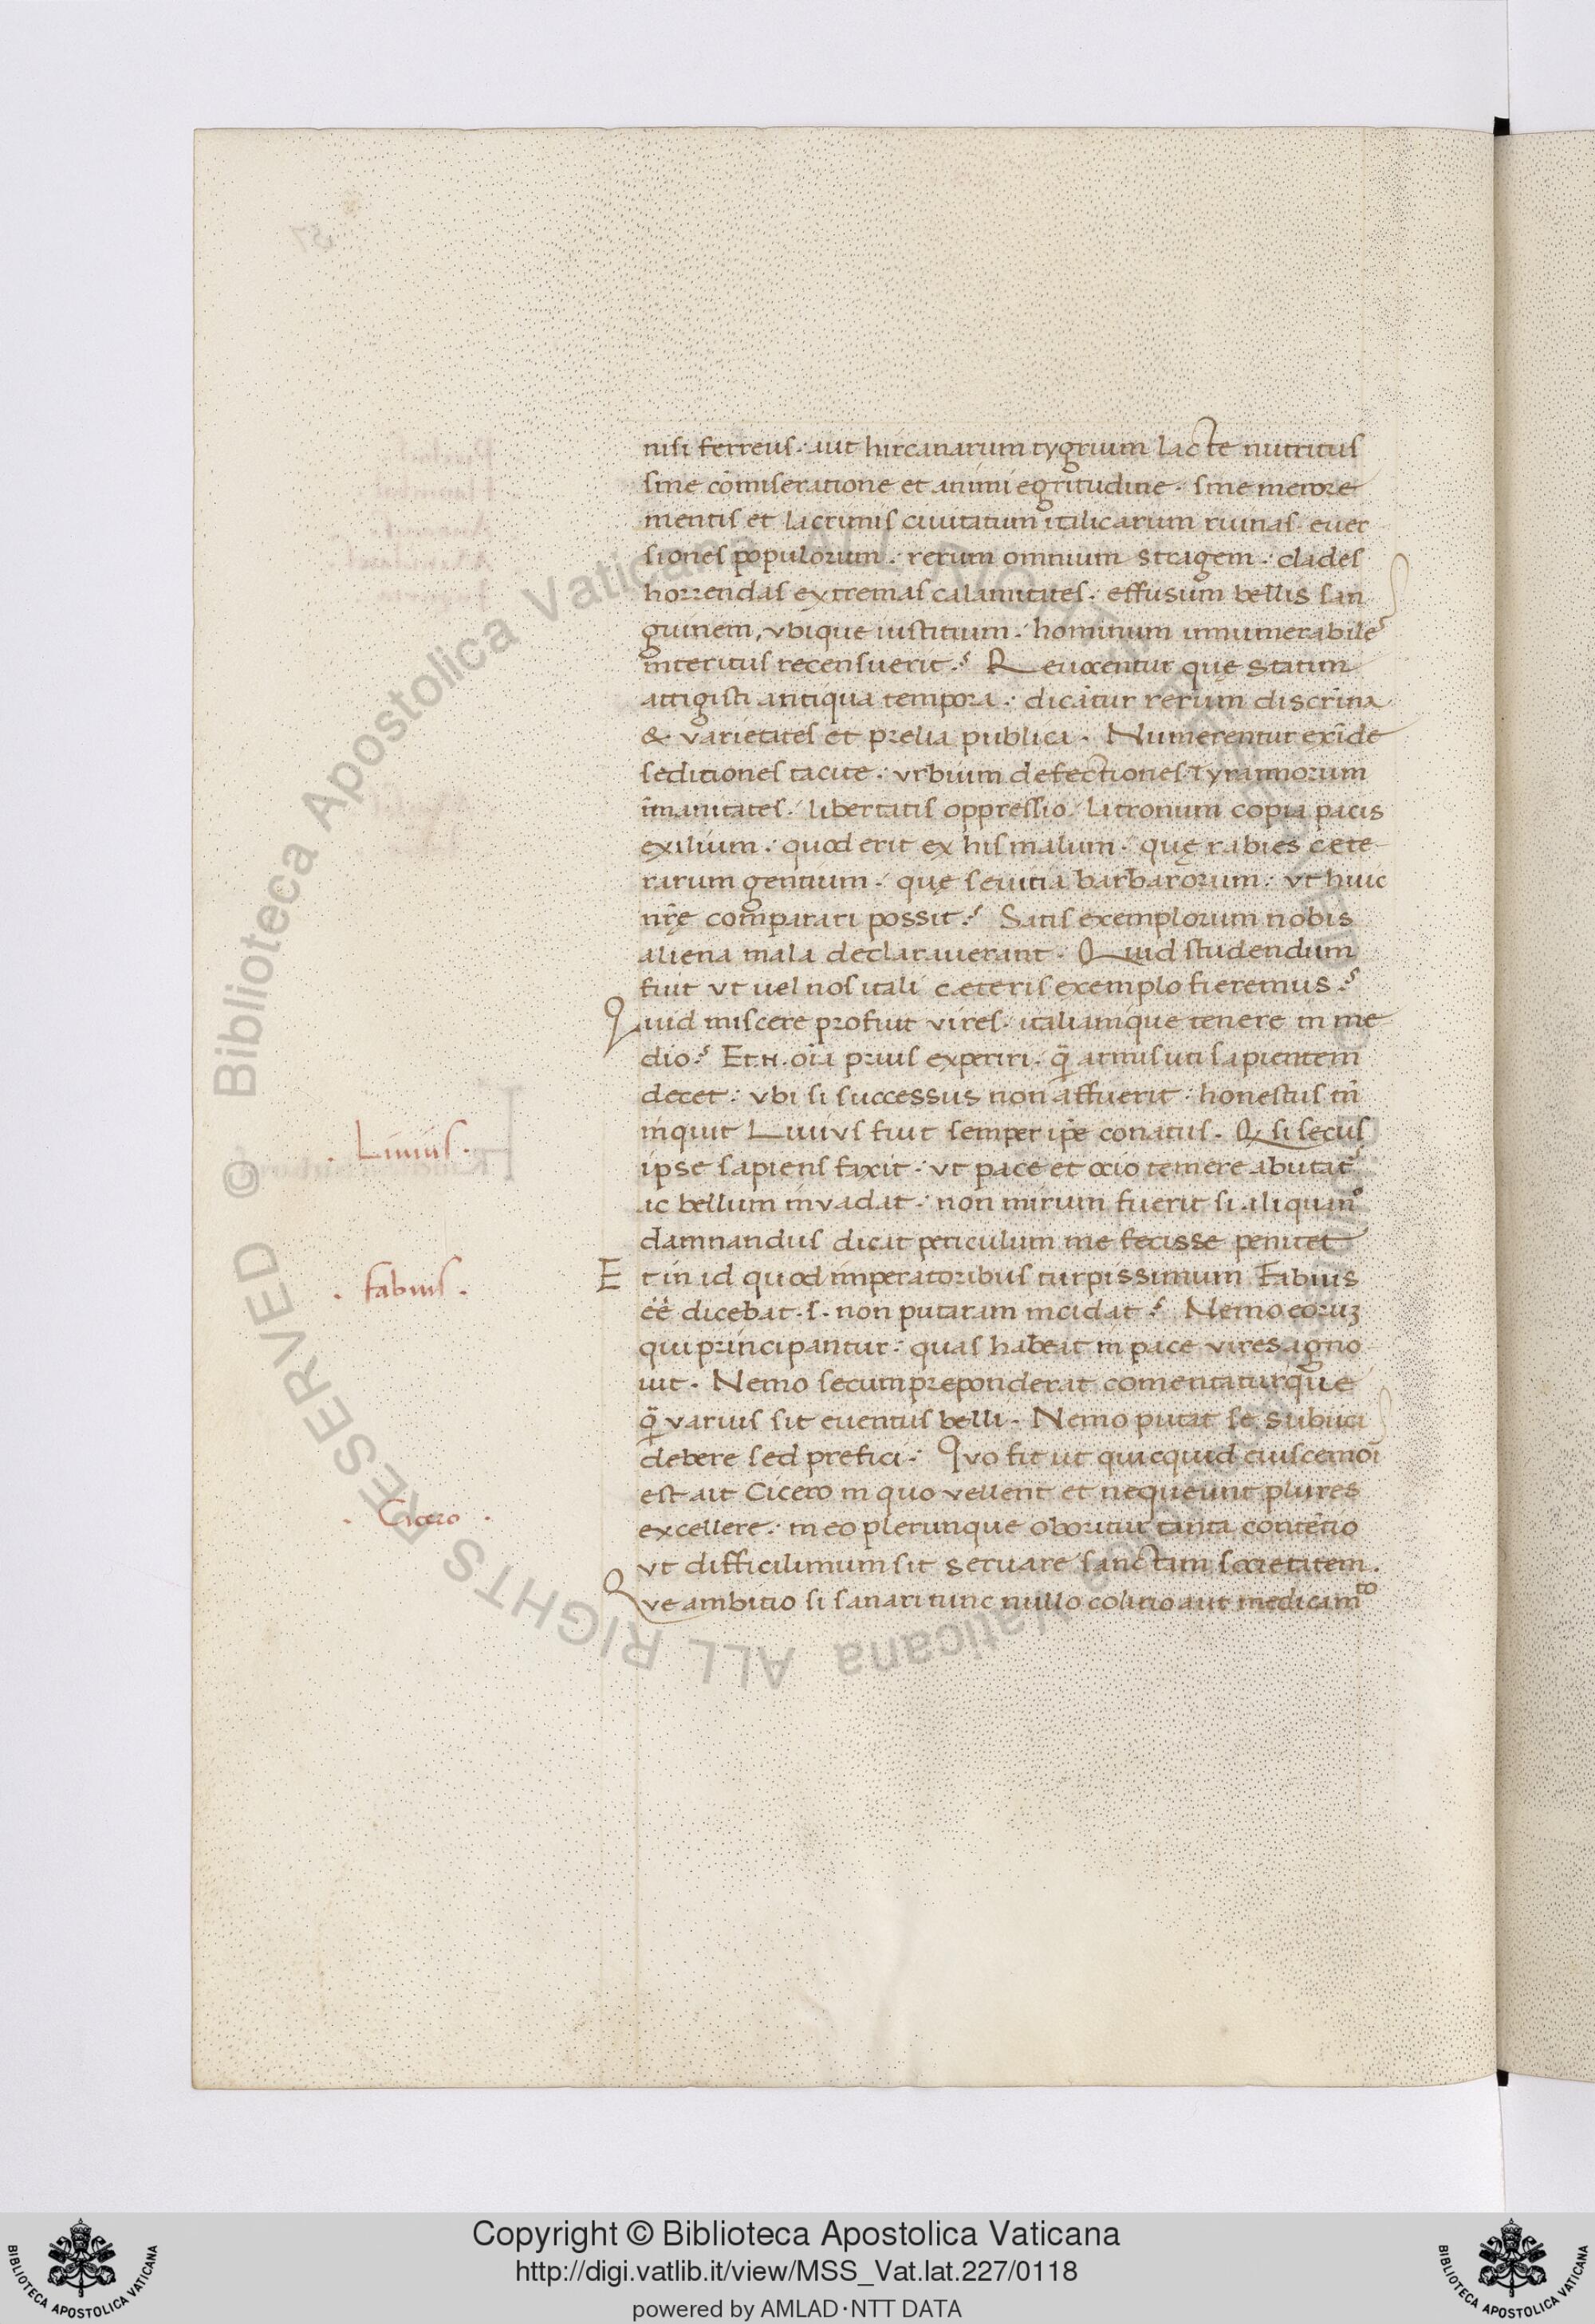 nisi ferreus. aut hircanarum tygrium lacte nutritus
sine cōmiseratione et animi egritudine. sine merore
mentis et lacrimis ciuitatum italicarum ruinas. euer
siones populorum. rerum omnium stragem. clades
horrendas extremas calamitates. effusum bellis san
guinem, vbique iustitium. hominum innumerabiles
interitus recensuerit? Reuocentur quę statim
attigisti antiqua tempora. dicātur rerum discrīna
& varietates et prelia publica. Numerentur exīde
seditiones tacite. vrbium defectiones. tyrannorum
īmanitates. libertatis oppressio. latronum copia pacis
exilium. quod erit ex his malum. quę rabies cete
rarum gentium. quę seuitia barbarorum. vt huic
nr̄ę comparari possit? Satis exemplorum nobis
aliena mala declarauerant. Quid studendum
fuit vt uel nos itali ceteris exemplo fieremus?
Quid miscere profuit vires. italiamque tenere in me
dio? Et.n. oīa prius experiri. q̄ armis uti sapientem
decet. vbi si successus non affuerit. honestus tn̄
inquit Liuius fuit semper ip̄e conatus. Q si secus
. Liuius .
ipse sapiens faxit. vt pace et ocio temere abutat
ac bellum invadat. non mirum fuerit si aliquanᵒ
damnandus dicat periculum me fecisse penitet
. fabius .
Et in id quod imperatoribus turpissimum Fabius
eē dicebat .s. non putaram incidat? Nemo eoruꝫ
qui principantur. quas habeat in pace vires agno
uit. Nemo secum preponderat comentaturque
q̄ varius sit euentus belli. Nemo putat se subiici
debere sed prefici. Quo fit ut quicquid eiuscemoī
est ait Cicero in quo vellent et nequeunt plures
. Cicero .
excellere. in eo plerunque oboritur tanta contētio
vt difficilimum sit seruare sanctam societatem.
Que ambitio si sanari tunc nullo colirio aut medicamᵗᵒ
Copyright © Biblioteca Apostolica Vaticana
http://digi.vatlib.it/view/MSS_Vat.lat.227/0118
powered by AMLAD·NTT DATA
BIBLIOTECA APOSTOLICA VATICANA
BIBLIOTECA APOSTOLICA VATICANA
© Biblioteca Apostolica Vaticana ALL RIGHTS RESERVED